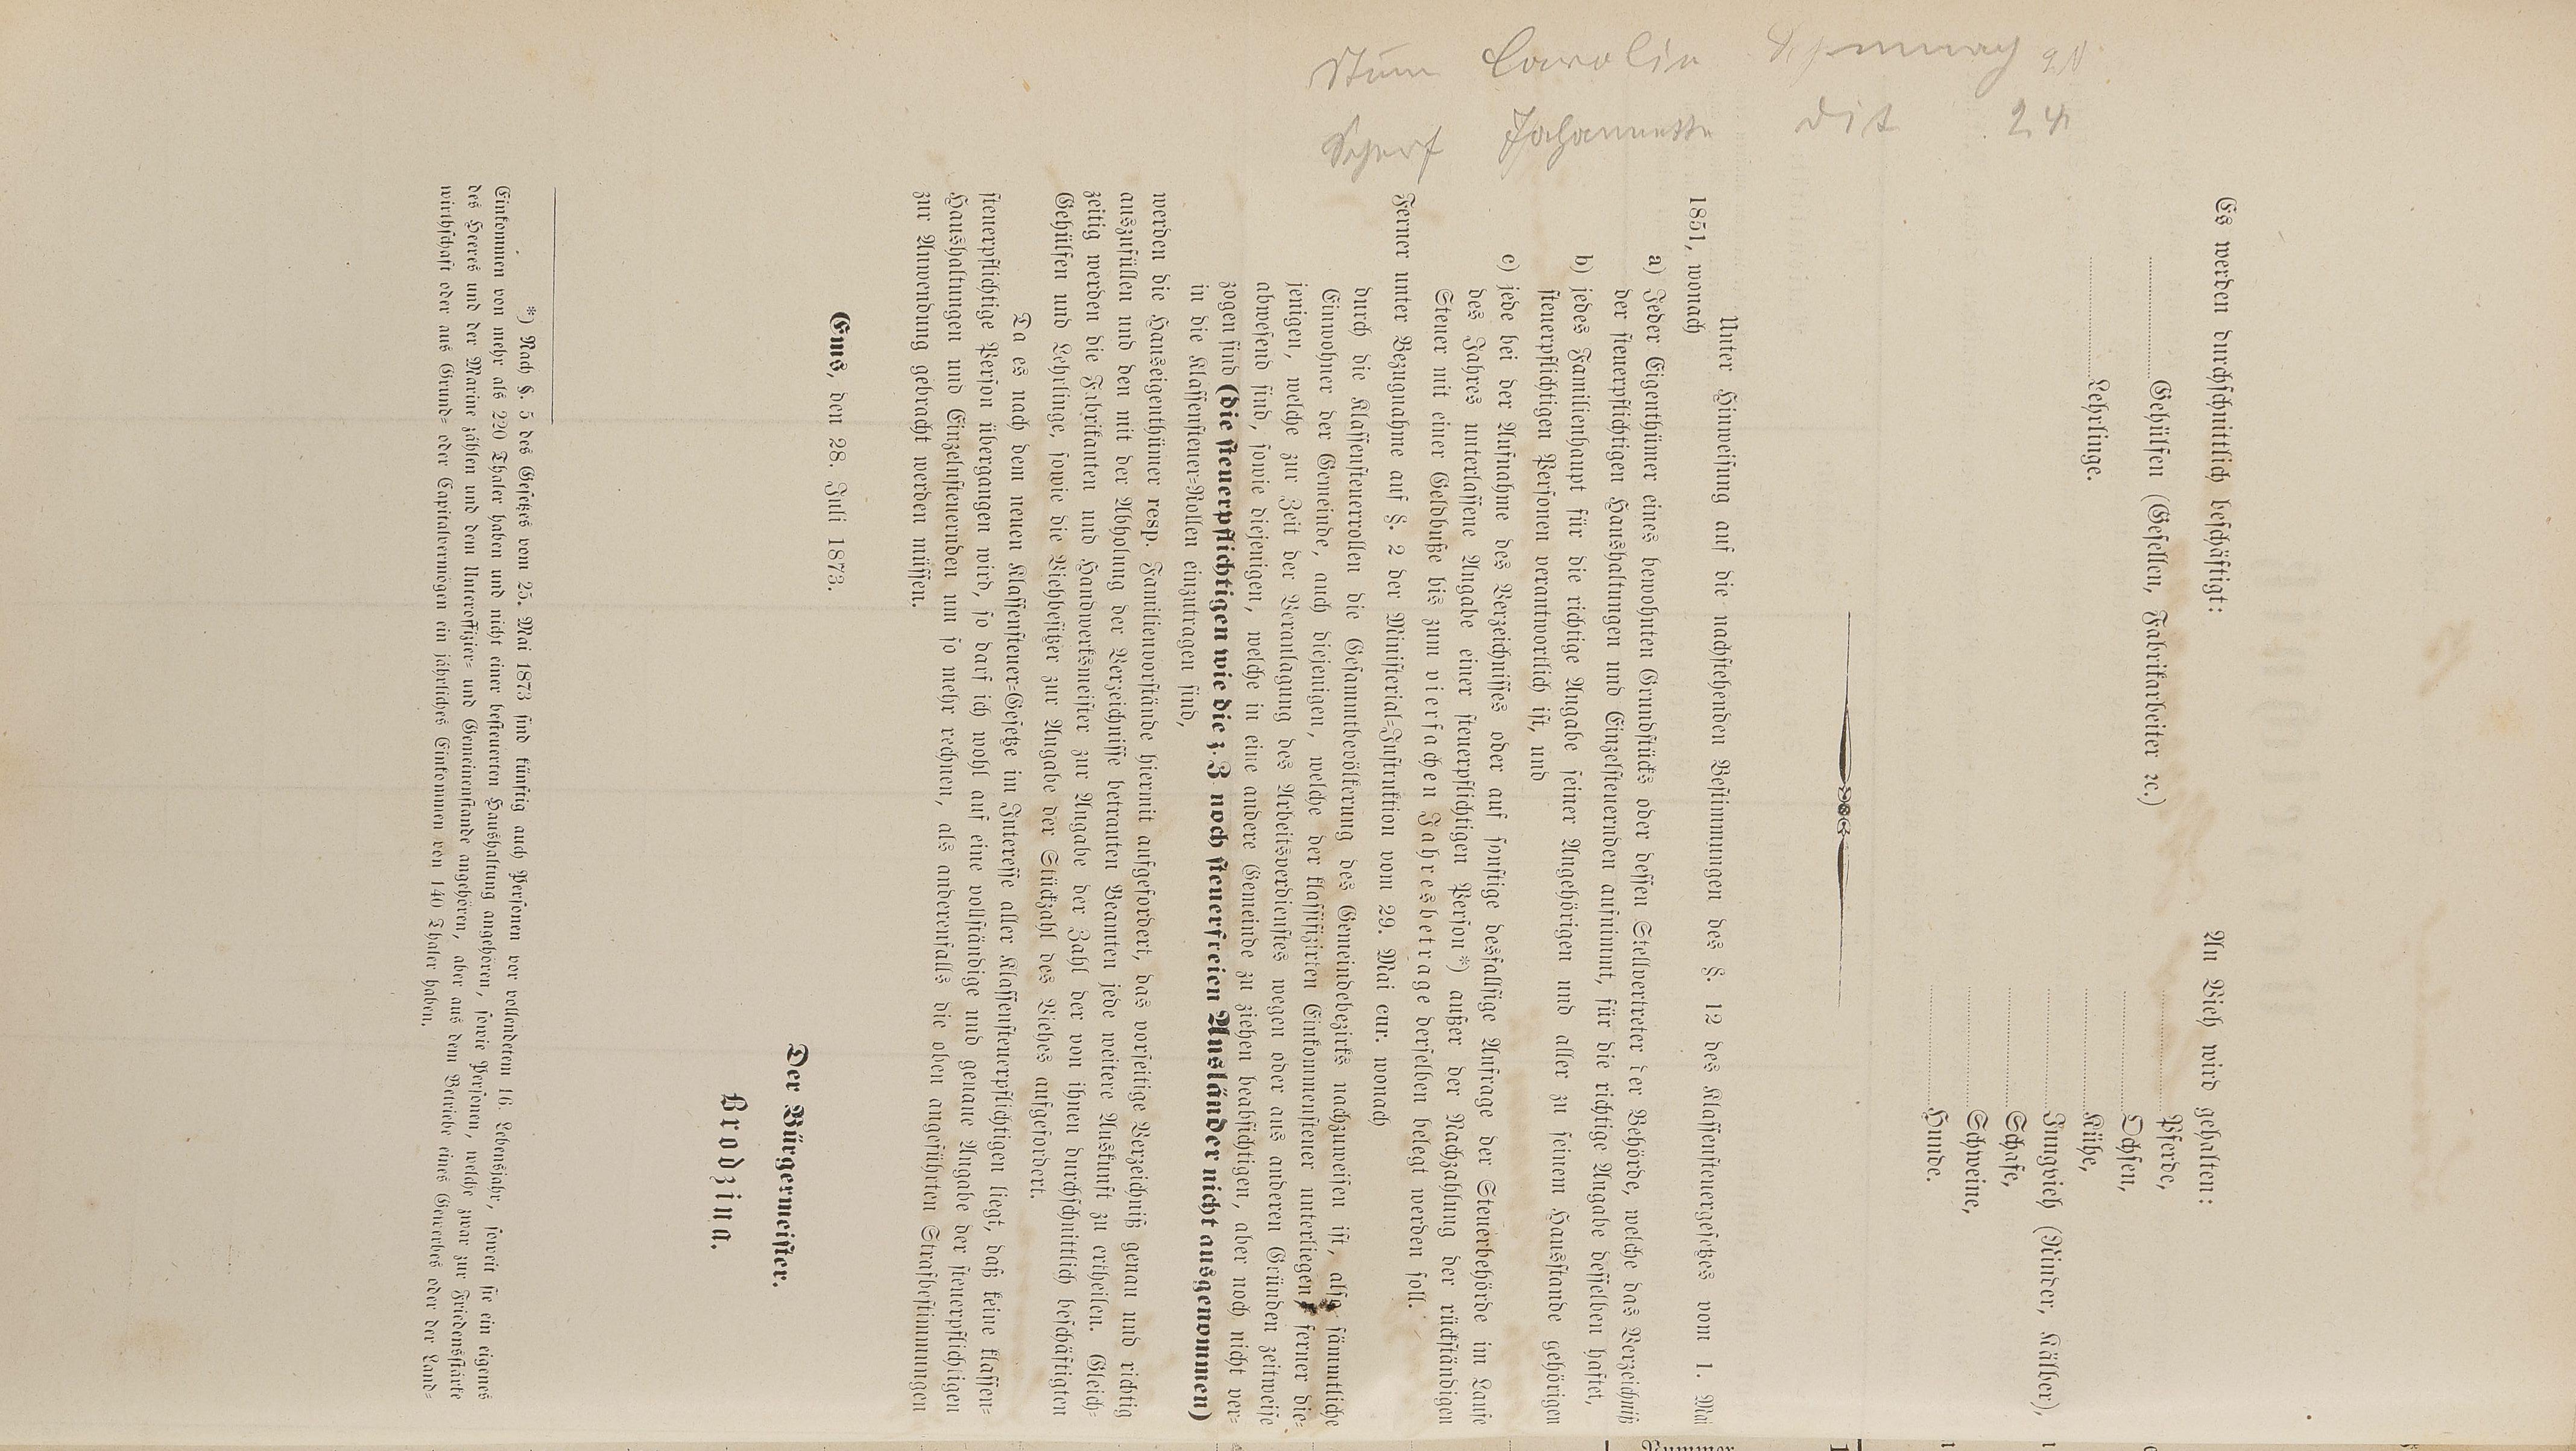 Es werden durchschnittlich beschäftigt:
Gehülfen (Gesellen, Fabrikarbeiter ꝛc.)
Lehrlinge.
An Vieh wird gehalten:
Pferde,
Ochsen,
Kühe,
Jungvieh (Rinder, Kälber),
Schafe,
Schweine,
Hunde.
Unter Hinweisung auf die nachstehenden Bestimmungen des §. 12 des Klassensteuergesetzes vom 1. Mai
1851, wonach
a) Jeder Eigenthümer eines bewohnten Grundstücks oder dessen Stellvertreter der Behörde, welche das Verzeichniß
der steuerpflichtigen Haushaltungen und Einzelsteuernden aufnimmt, für die richtige Angabe desselben haftet,
b) jedes Familienhaupt für die richtige Angabe seiner Angehörigen und aller zu seinem Hausstande gehörigen
steuerpflichtigen Personen verantwortlich ist, und
c) jede bei der Aufnahme des Verzeichnisses oder auf sonstige desfallsige Anfrage der Steuerbehörde im Laufe
des Jahres unterlassene Angabe einer steuerpflichtigen Person*) außer der Nachzahlung der rückständigen
Steuer mit einer Geldbuße bis zum vierfachen Jahresbetrage derselben belegt werden soll.
Ferner unter Bezugnahme auf §. 2 der Ministerial=Instruktion vom 29. Mai cur. wonach
durch die Klassensteuerrollen die Gesammtbevölkerung des Gemeindebezirks nachzuweisen ist, also sämmtliche
Einwohner der Gemeinde, auch diejenigen, welche der klassifizirten Einkommensteuer unterliegen, ferner die=
jenigen, welche zur Zeit der Veranlagung des Arbeitsverdienstes wegen oder aus anderen Gründen zeitweise
abwesend sind, sowie diejenigen, welche in eine andere Gemeinde zu ziehen beabsichtigen, aber noch nicht ver=
zogen sind (die steuerpflichtigen wie die z. Z noch steuerfreien Ausländer nicht ausgenommen)
in die Klassensteuer=Rollen einzutragen sind,
werden die Hauseigenthümer resp. Familienvorstände hiermit aufgefordert, das vorseitige Verzeichniß genau und richtig
auszufüllen und den mit der Abholung der Verzeichnisse betrauten Beamten jede weitere Auskunft zu ertheilen. Gleich=
zeitig werden die Fabrikanten und Handwerksmeister zur Angabe der Zahl der von ihnen durchschnittlich beschäftigten
Gehülfen und Lehrlinge, sowie die Viehbesitzer zur Angabe der Stückzahl des Viehes aufgefordert.
Da es nach dem neuen Klassensteuer=Gesetze im Interesse aller Klassensteuerpflichtigen liegt, daß keine klassen=
steuerpflichtige Person übergangen wird, so darf ich wohl auf eine vollständige und genaue Angabe der steuerpflichigen
Haushaltungen und Einzelnsteuernden um so mehr rechnen, als anderenfalls die oben angeführten Strafbestimmungen
zur Anwendung gebracht werden müssen.
Ems, den 28. Juli 1873.
Der Bürgermeister.
Brodzina.
*) Nach §. 5 des Gesetzes vom 25. Mai 1873 sind künftig auch Personen vor vollendetem 16. Lebensjahr, soweit sie ein eigenes
Einkommen von mehr als 220 Thaler haben und nicht einer besteuerten Haushaltung angehören, sowie Personen, welche zwar zur Friedensstärke
des Heeres und der Marine zählen und dem Unteroffizier= und Gemeinenstande angehören, aber aus dem Betriebe eines Gewerbes oder der Land=
wirthschaft oder aus Grund= oder Capitalvermögen ein jährliches Einkommen von 140 Thaler haben.
Carolin
Scherf Johannette dit 24
Nummer